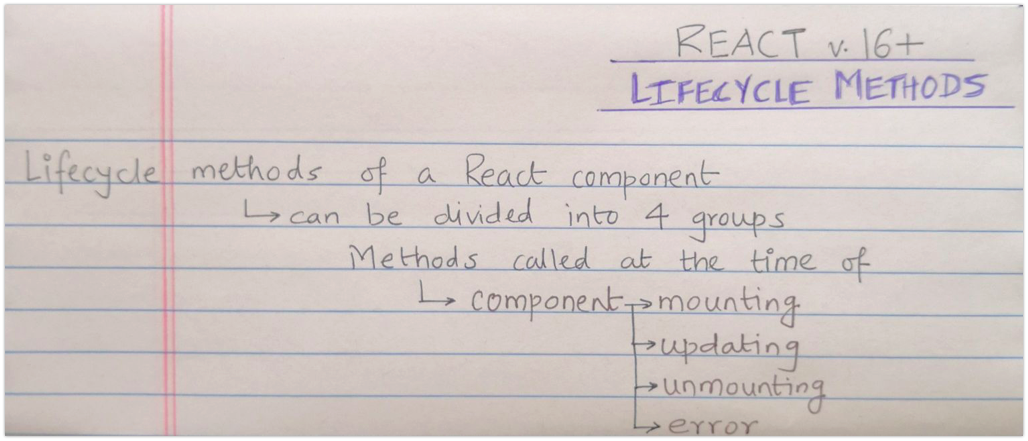 REACT v. 16+
LIFECYCLE METHODS
Lifecycle methods of a React component
↳ can be divided into 4 groups
Methods called at the time of
↳ component → mounting
→ updating
→ unmounting
→ error